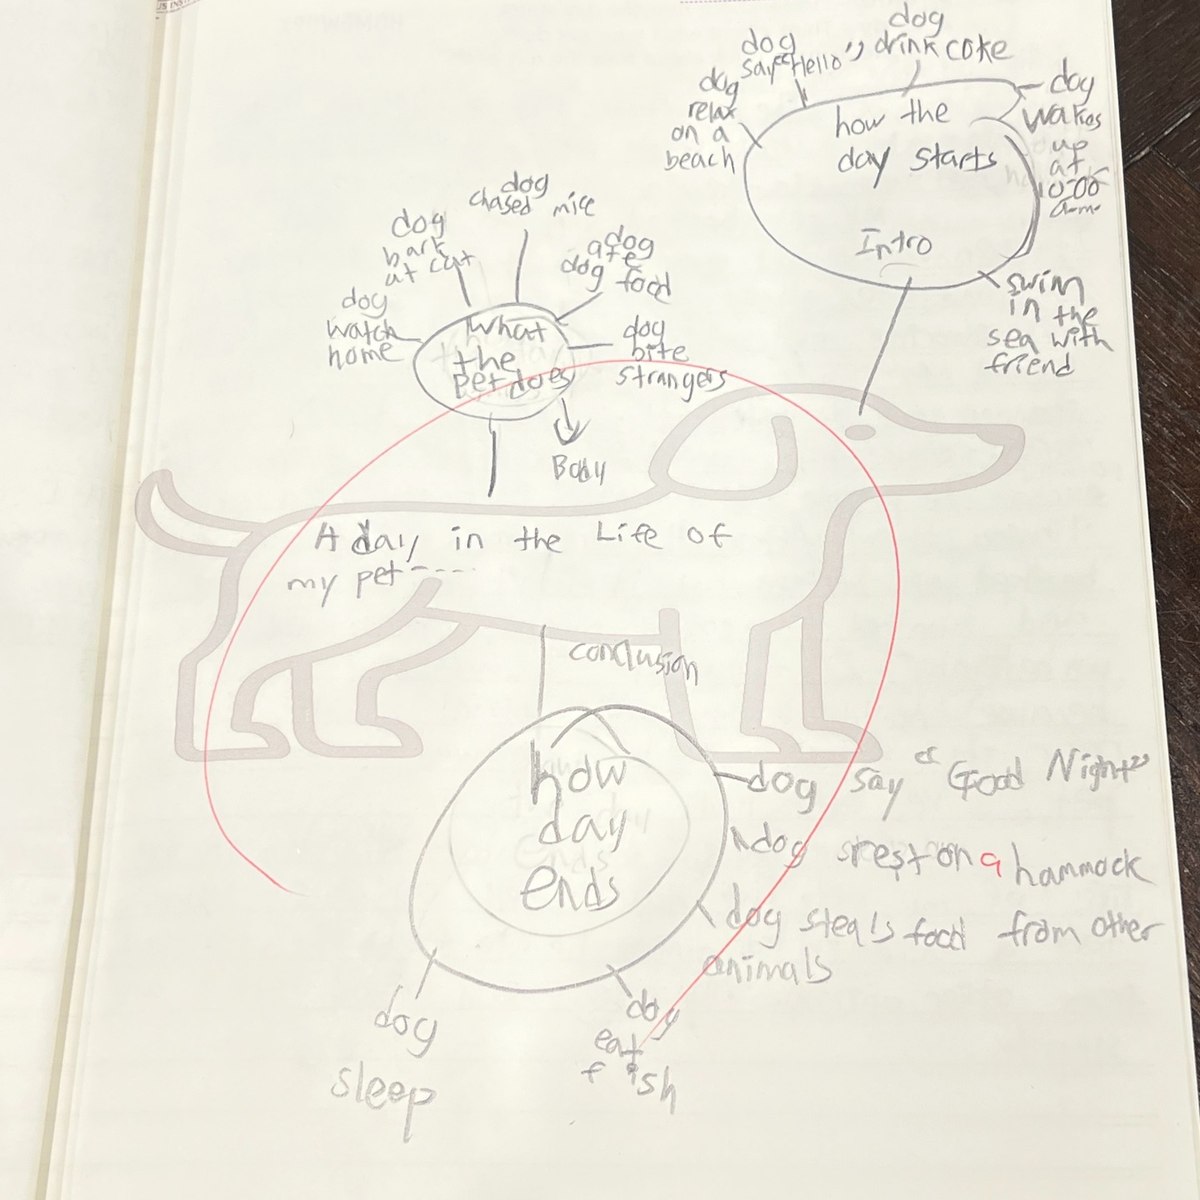 dog
drink coke
dog
say "Hello"
dog
relax
on a
beach
how the
day starts
Intro
dog
wakes
up
at
10:00
a.m.
swim
in the
sea with
friend
dog
chased mice
dog
bark
at cat
dog
ate
dog food
dog
watch
home
What
the
pet does
dog
bite
strangers
Body
A day in the Life of
my pet-----
conclusion
how
day
ends
dog say "Good Night"
dog rest on a hammock
dog steals food from other
animals
dog
eat
fish
dog
sleep